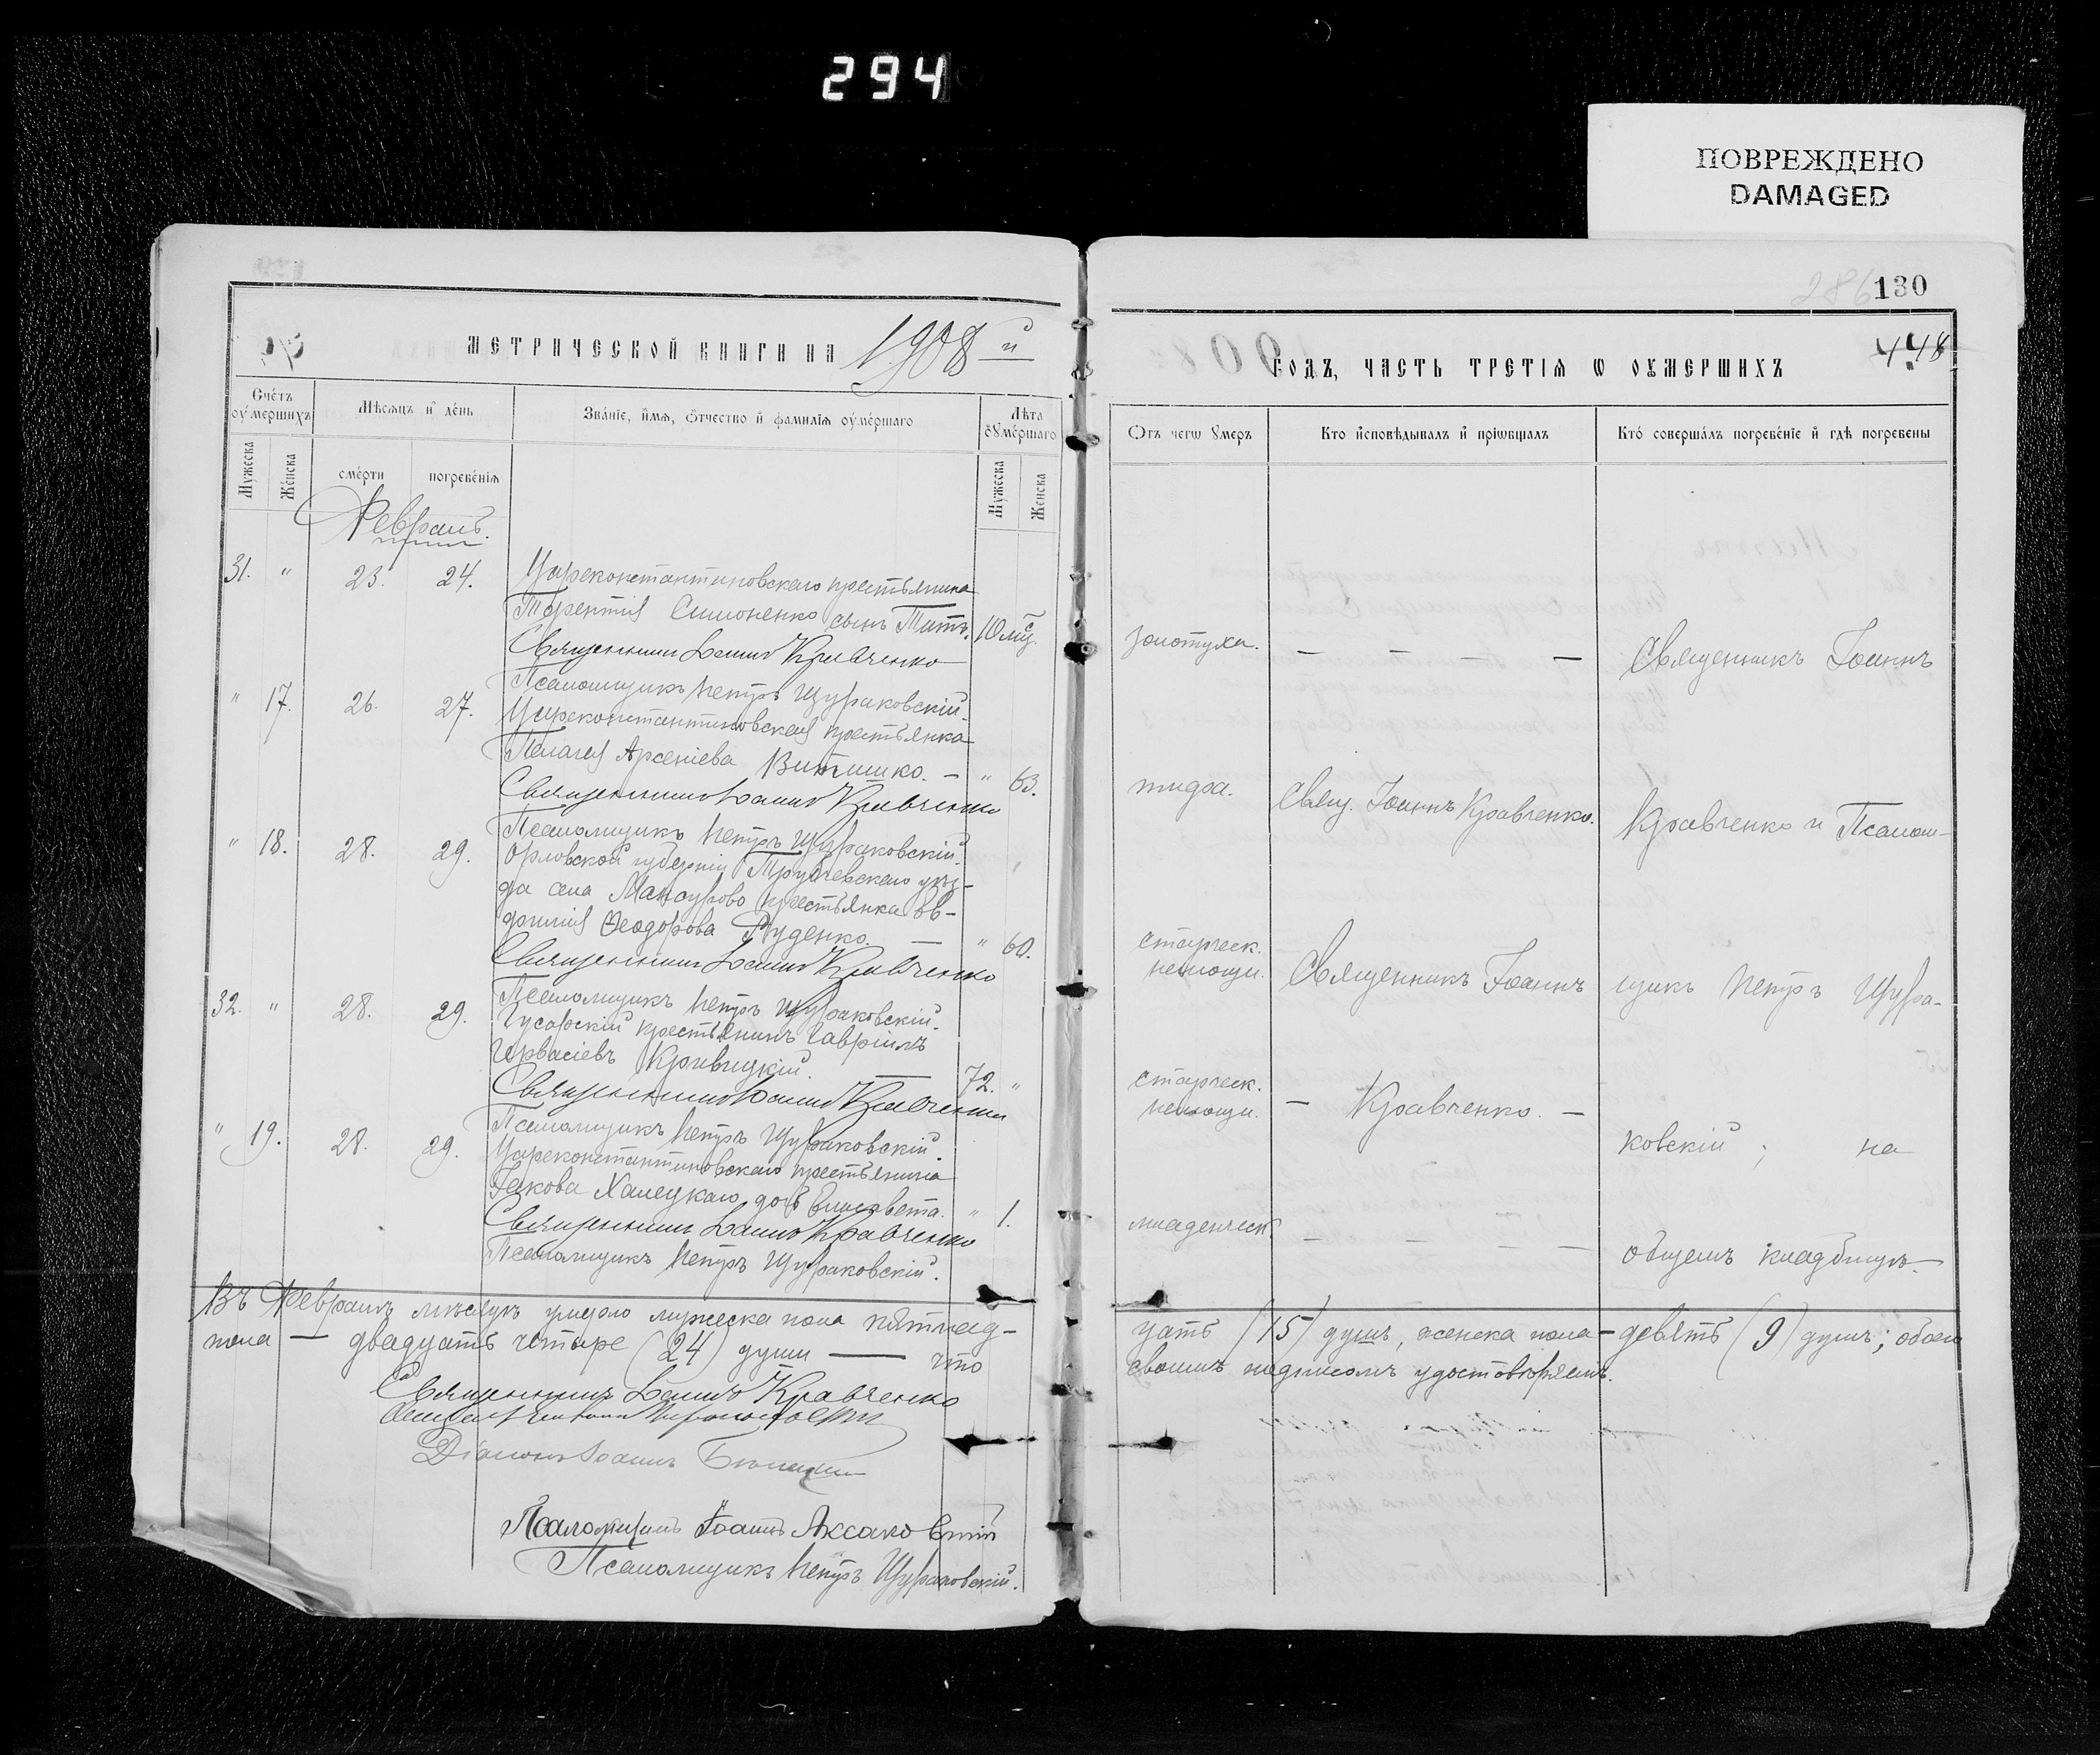 294
ПОВРЕЖДЕНО
DAMAGED
286
130
МЕТРИЧЕСКОЙ КНИГИ НА 1908й
ГОДЪ, ЧАСТЬ ТРЕТІЯ Ѡ ОУМЕРШИХЪ
448
Счетъ оумершихъ
Мѣсяцъ и день
Званіе, имя, отчество и фамилія оумершаго
Лѣта оумершаго
Отъ чегѡ умеръ
Кто исповѣдывалъ и пріѡбщалъ
Кто совершалъ погребеніе и гдѣ погребены
Мужеска
Женска
смерти
погребенія
Мужеска
Женска
Февраль.
31. " 23. 24. Цареконстантиновскаго крестьянина
Терентія Симоненко сынъ Титъ. 10 мц. золотуха. — — — —
Священникъ Іоаннъ Кравченко
Священникъ Іоаннъ
Псаломщикъ Петръ Щураковскій.
" 17. 26. 27. Цареконстантиновская крестьянка
Пелагея Арсеніева Витишко. — " 63. тифа. Свящ. Іоаннъ Кравченко.
Священникъ Іоаннъ Кравченко
Кравченко и Псалом-
Псаломщикъ Петръ Щураковскій.
" 18. 28. 29. Орловской губерніи Трубчевскаго уѣз-
да села Мансурово крестьянка Ев-
фимія Ѳеодорова Руденко. — " 60. старческ. немощи.
Священникъ Іоаннъ Кравченко
Священникъ Іоаннъ
щикъ Петръ Щура-
Псаломщикъ Петръ Щураковскій.
32. " 28. 29. Гусарскій крестьянинъ Гавріилъ
Герасіевъ Кривицкій. — 72. " старческ. немощи. — Кравченко. —
Священникъ Іоаннъ Кравченко
Псаломщикъ Петръ Щураковскій.
ковскій; на
" 19. 28. 29. Цареконстантиновскаго крестьянина
Іакова Халецкаго дочь Елисавета. " 1. младенческ. — — — —
Священникъ Іоаннъ Кравченко
общемъ кладбищѣ.
Псаломщикъ Петръ Щураковскій.
Въ Февралѣ мѣсяцѣ умерло мужеска пола пятнад-
цать (15) душъ, женска пола — девять (9) душъ; обоего
пола — двадцать четыре (24) души — что
своимъ подписомъ удостовѣряемъ.
Священникъ Іоаннъ Кравченко
Діаконъ Іоаннъ
Псаломщикъ Іоаннъ Аксаковскій
Псаломщикъ Петръ Щураковскій.